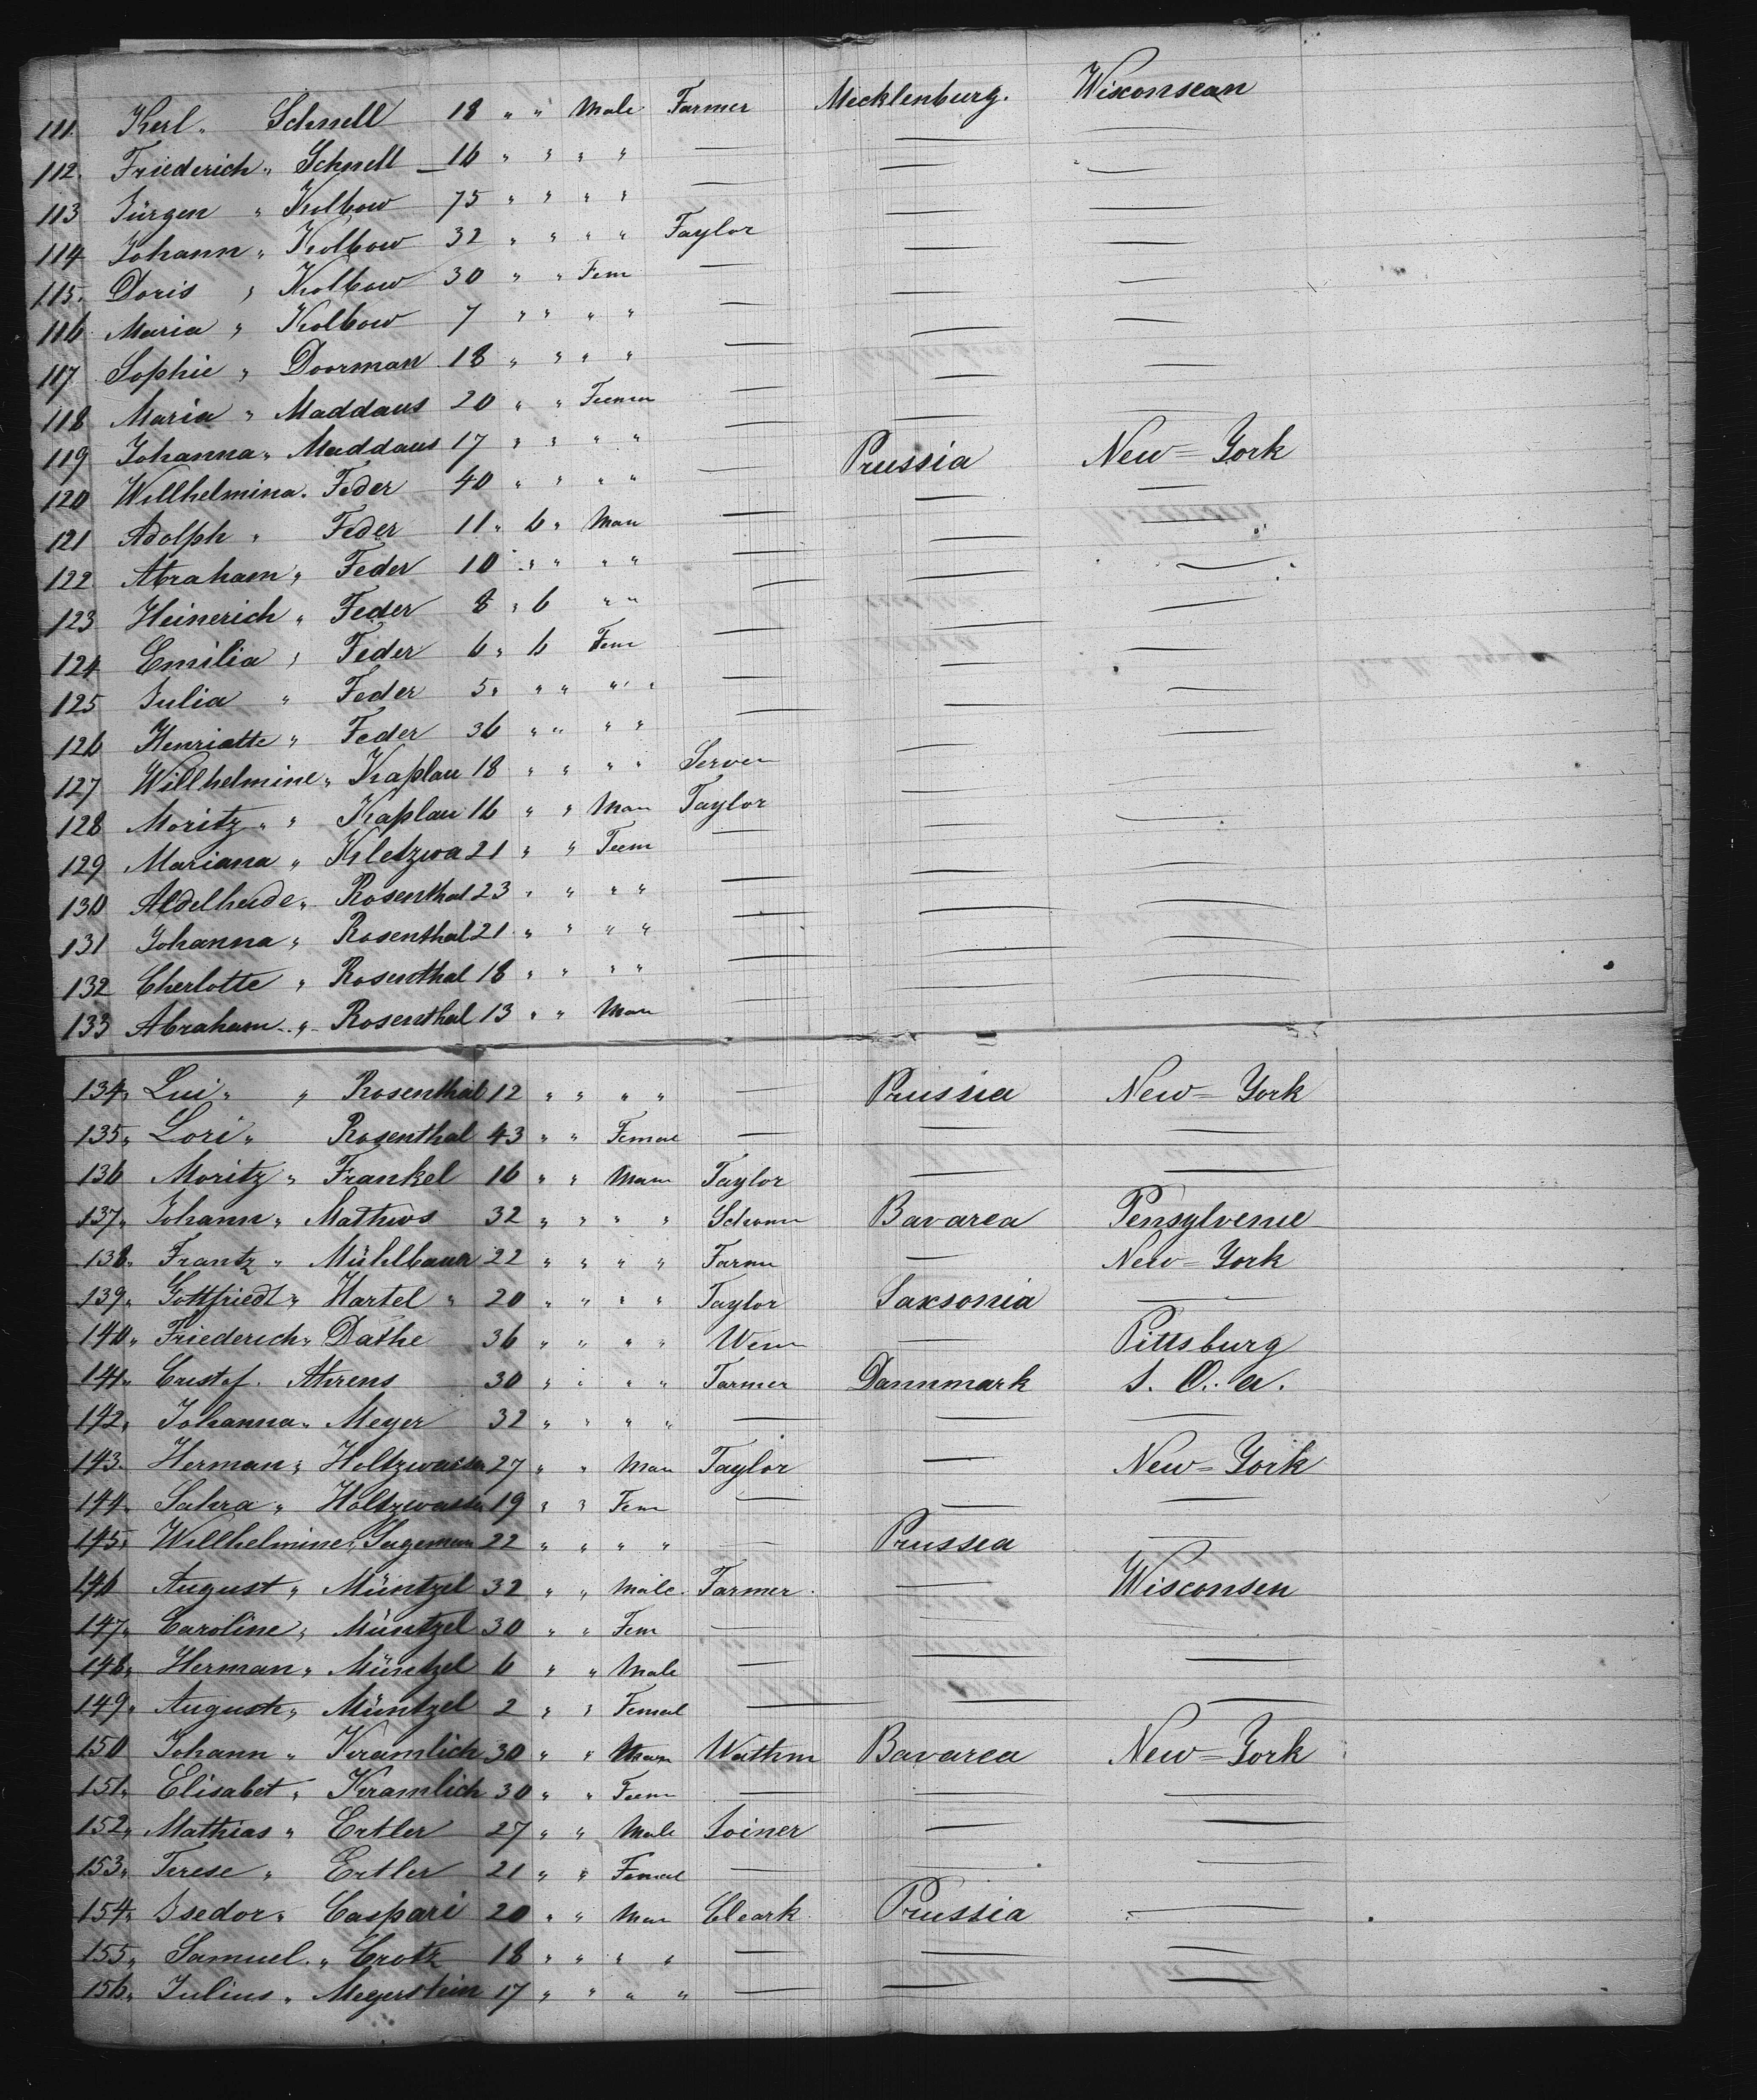 111. Kerl " Schnell 18 " " Male Farmer Mecklenburg. Wisconsean
112. Friederich " Schnell 16 " " " " — — —
113 Jürgen " Kolbow 75 " " " " — — —
114 Johann " Kolbow 32 " " " " Taylor — —
115. Doris " Kolbow 30 " " Fem — — —
116 Maria " Kolbow 7 " " " " — — —
117 Sophie " Doorman 18 " " " " — — —
118 Maria " Maddaus 20 " " Feemen — — —
119 Johanna " Maddaus 17 " " " " — — —
120 Willhelmina . Feder 40 " " " " — Prussia New=York
121 Adolph " Feder 11 " 6 " Man — — —
122 Abraham " Feder 10 " " " " — — —
123 Heinerich " Feder 8 " 6 " " — — —
124 Emilia " Feder 6 " 6 Fem — — —
125 Julia " Feder 5 " " " " " — — —
126 Henriatte " Feder 36 " " " " — — —
127 Willhelmine " Kaplau 18 " " " " Server — —
128 Moritz " " Kaplau 16 " " Man Taylor — —
129 Mariana " Kletzwa 21 " " Feem — — —
130 Aldelheide " Rosenthal 23 " " " " — — —
131 Johanna " Rosenthal 21 " " " " — — —
132 Cherlotte " Rosenthal 18 " " " " — — —
133 Abraham " Rosenthal 13 " " Man — — —
134 " Lui " " Rosenthal 12 " " " " — Prussia New=York
135 " Lori " Rosenthal 43 " " Femal — — —
136 Moritz " Frankel 16 " " Man Taylor — —
137 " Johann " Mathws 32 " " " " Bavarea Pensylvenie
138 " Frantz " Mühlbauer 22 " " " " Farm — New=York
139 " Gottfriedt " Hartel " 20 " " " " Taylor Saxsonia —
140 " Friederich " Dathe 36 " " " " — Pittsburg
141 " Custof . Ahrens 30 " " " " Farmer Dannmark
142 " Johanna " Meyer 32 " " " " — — —
143 . Herman " Holtzwasser 27 " " Man Taylor — New=York
144 " Sahra " Holtzwasser 19 " " Fem — — —
145 " Willhelmine " 22 " " " " — Prussea —
146 August " Müntzel 32 " " Male . Farmer . — Wisconsen
147 " Caroline " Müntzel 30 " " Fem — — —
148 " Herman " Müntzel 6 " " Male — — —
149 " Auguste " Müntzel 2 " " Femal — — —
150 Johann " Kramlich 30 " " Man Wathm Bavarea New=York
151 " Elisabet " Kramlich 30 " " Feem — — —
152 " Mathias " Ertler 27 " " Male Joiner — —
153 " Terese " Ertler 21 " " Femal — — —
154 " Isedor " Caspari 20 " " Man Cleark Prussia —
155 " Samuel . " Crotz 18 " " " " — — —
156 " Julius " Megerstein 17 " " " " — — —